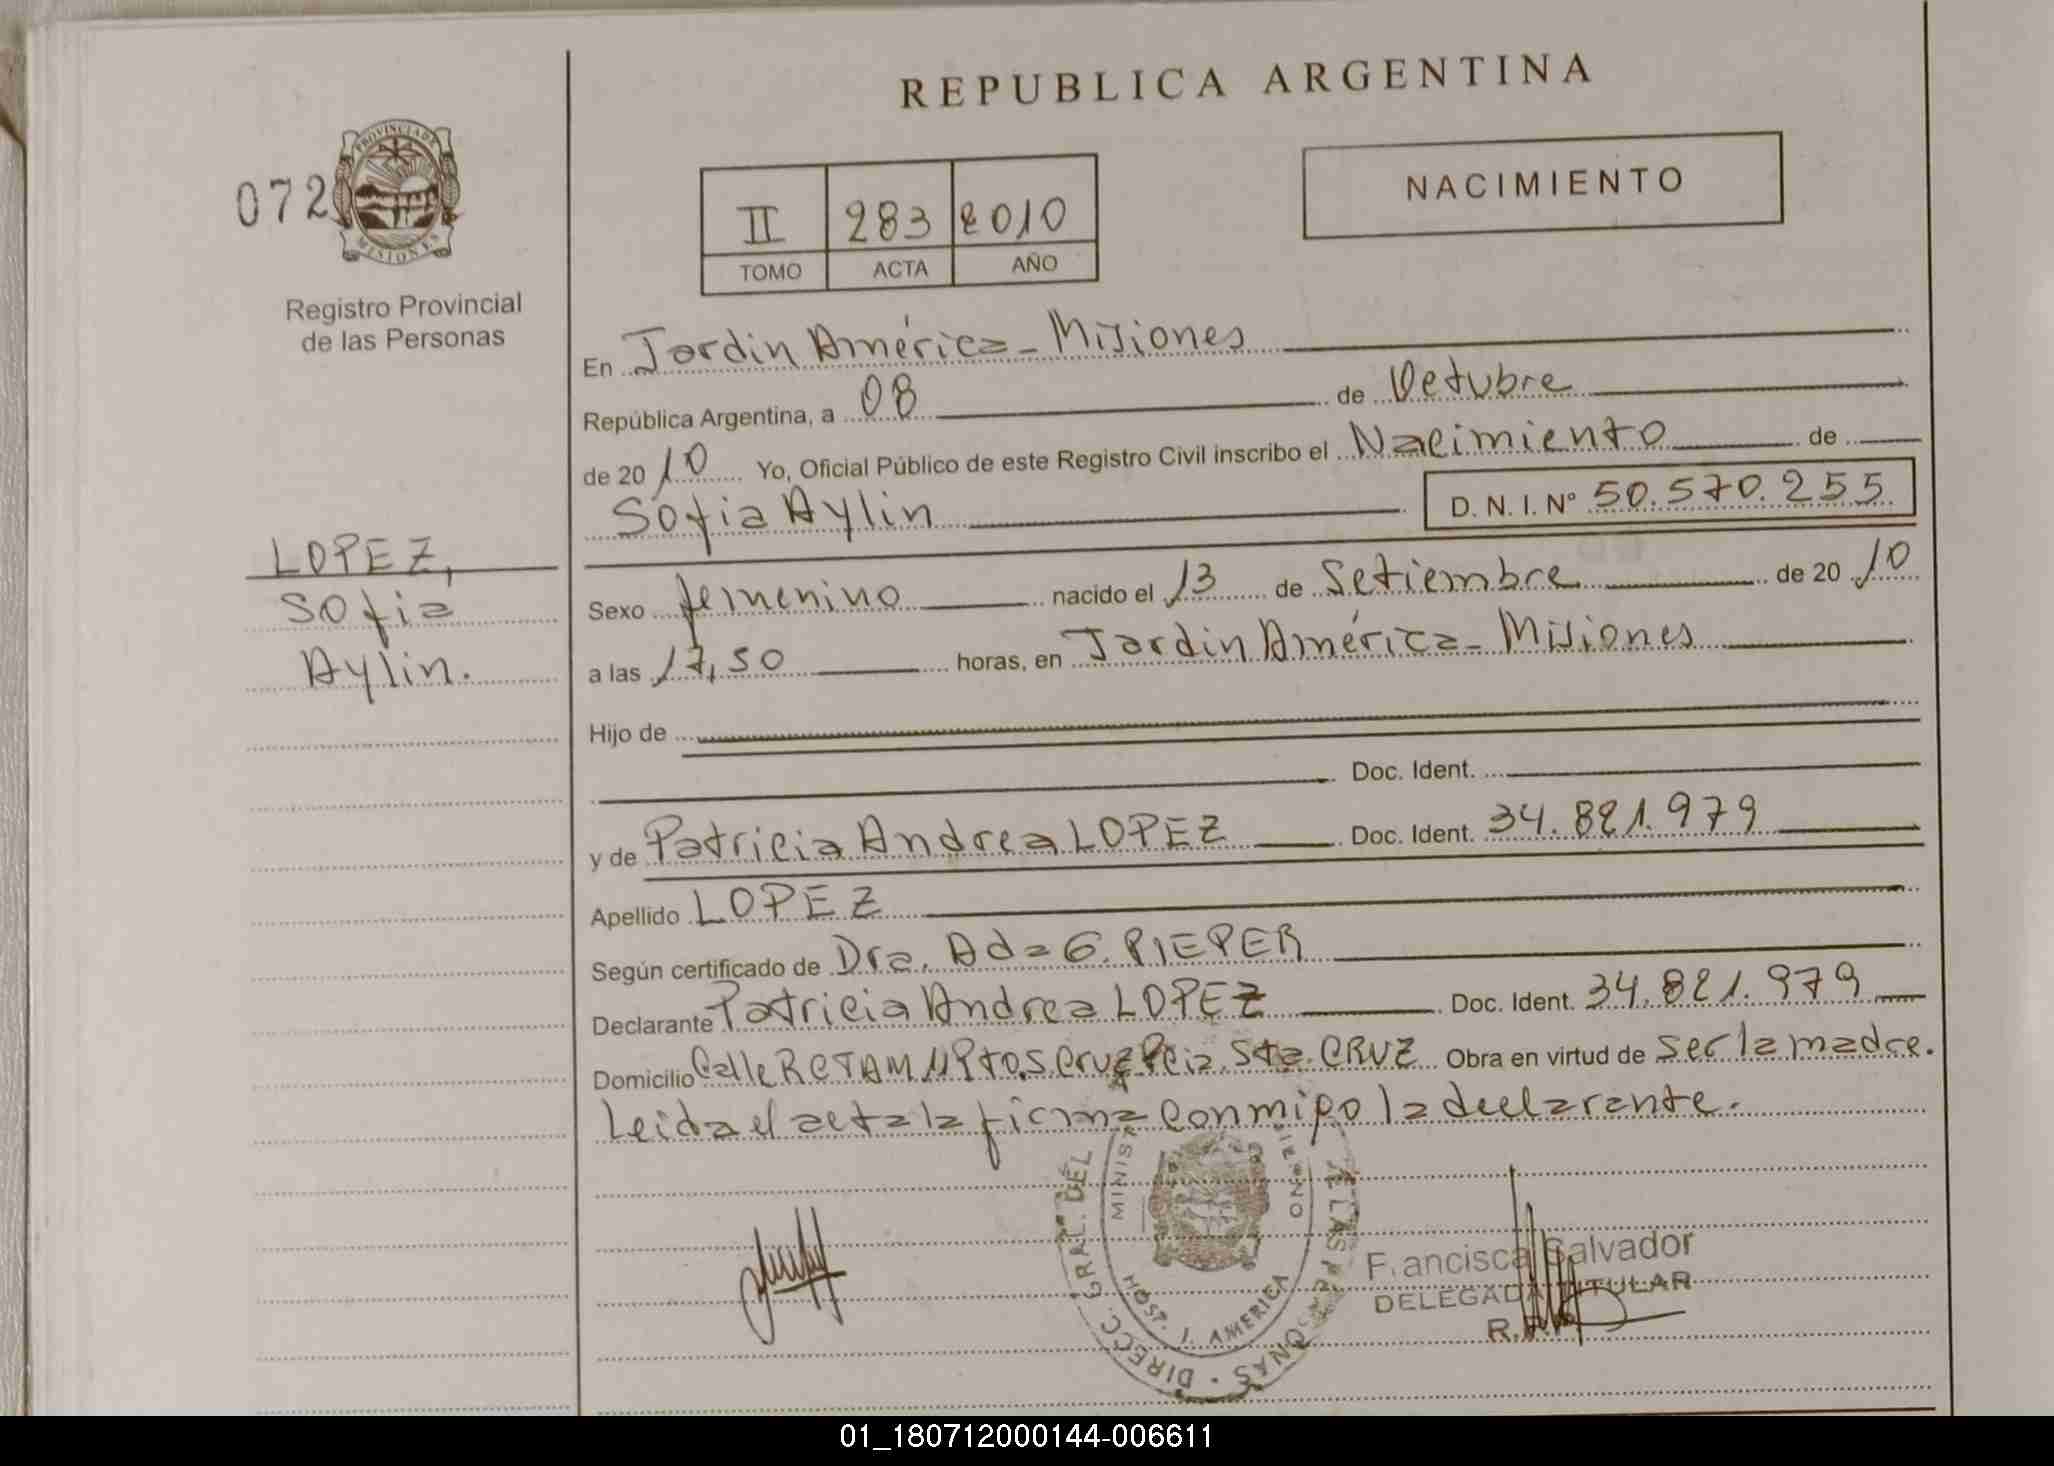 REPUBLICA ARGENTINA
072
PROVINCIA DE
MISIONES
Registro Provincial
de las Personas
NACIMIENTO
II 283 2010
TOMO ACTA AÑO
En Jardin América - Misiones
República Argentina, a 08 de Octubre
de 20 10 Yo, Oficial Público de este Registro Civil inscribo el Nacimiento de
Sofia Aylin D. N. I. Nº 50.570.255
LOPEZ,
Sofia
Aylin.
Sexo femenino nacido el 13 de Setiembre de 20 10
a las 17,50 horas, en Jardin América - Misiones
Hijo de
Doc. Ident.
y de Patricia Andrea LOPEZ Doc. Ident. 34.821.979
Apellido LOPEZ
Según certificado de Dra. Ada G. PIEPER
Declarante Patricia Andrea LOPEZ Doc. Ident. 34.821.979
Domicilio Calle Pto. S. Cruz Pcia. Sta. CRUZ Obra en virtud de ser la madre.
Leida el acta la firma conmigo la declarante.
DIRECC. GRAL. DEL LAS PERSONAS
MINIST
HOSP. J. AMERICA
Francisca Salvador
DELEGADA TITULAR
01_180712000144-006611